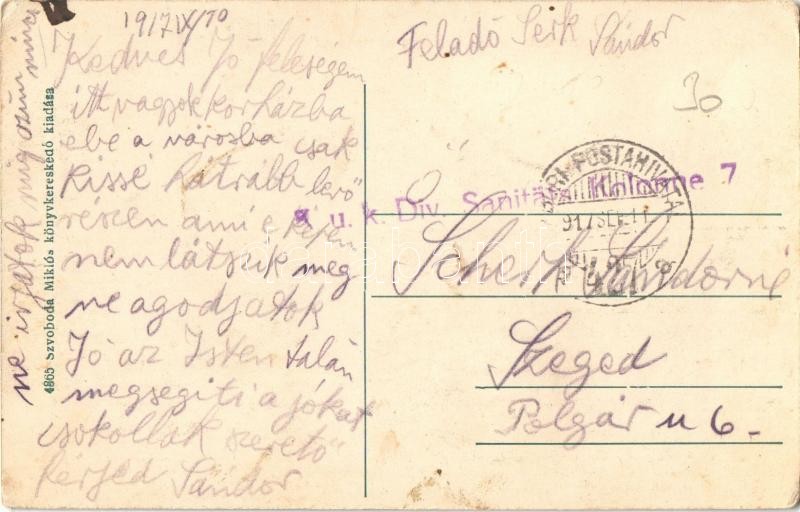 1917 IX/10
Kedves Jó feleségem
itt vagyok korházba
ebe a városba csak
kissé hátrább levő
részen ami e képen
nem látszik meg
ne agodjatok
Jó az Isten talán
megsegiti a jókat
csokollak szerető
férjed Sándor
ne irjatok mig
4865 Szvoboda Miklós könyvkereskedő kiadása
Feladó Serk Sándor
30
K. u. k. Div. Sanitäts Kolonne 7
TÁBORI POSTAHIVATAL
917 SEP. 11
Ő
Scherk Sándorné
Szeged
Polgár u 6.